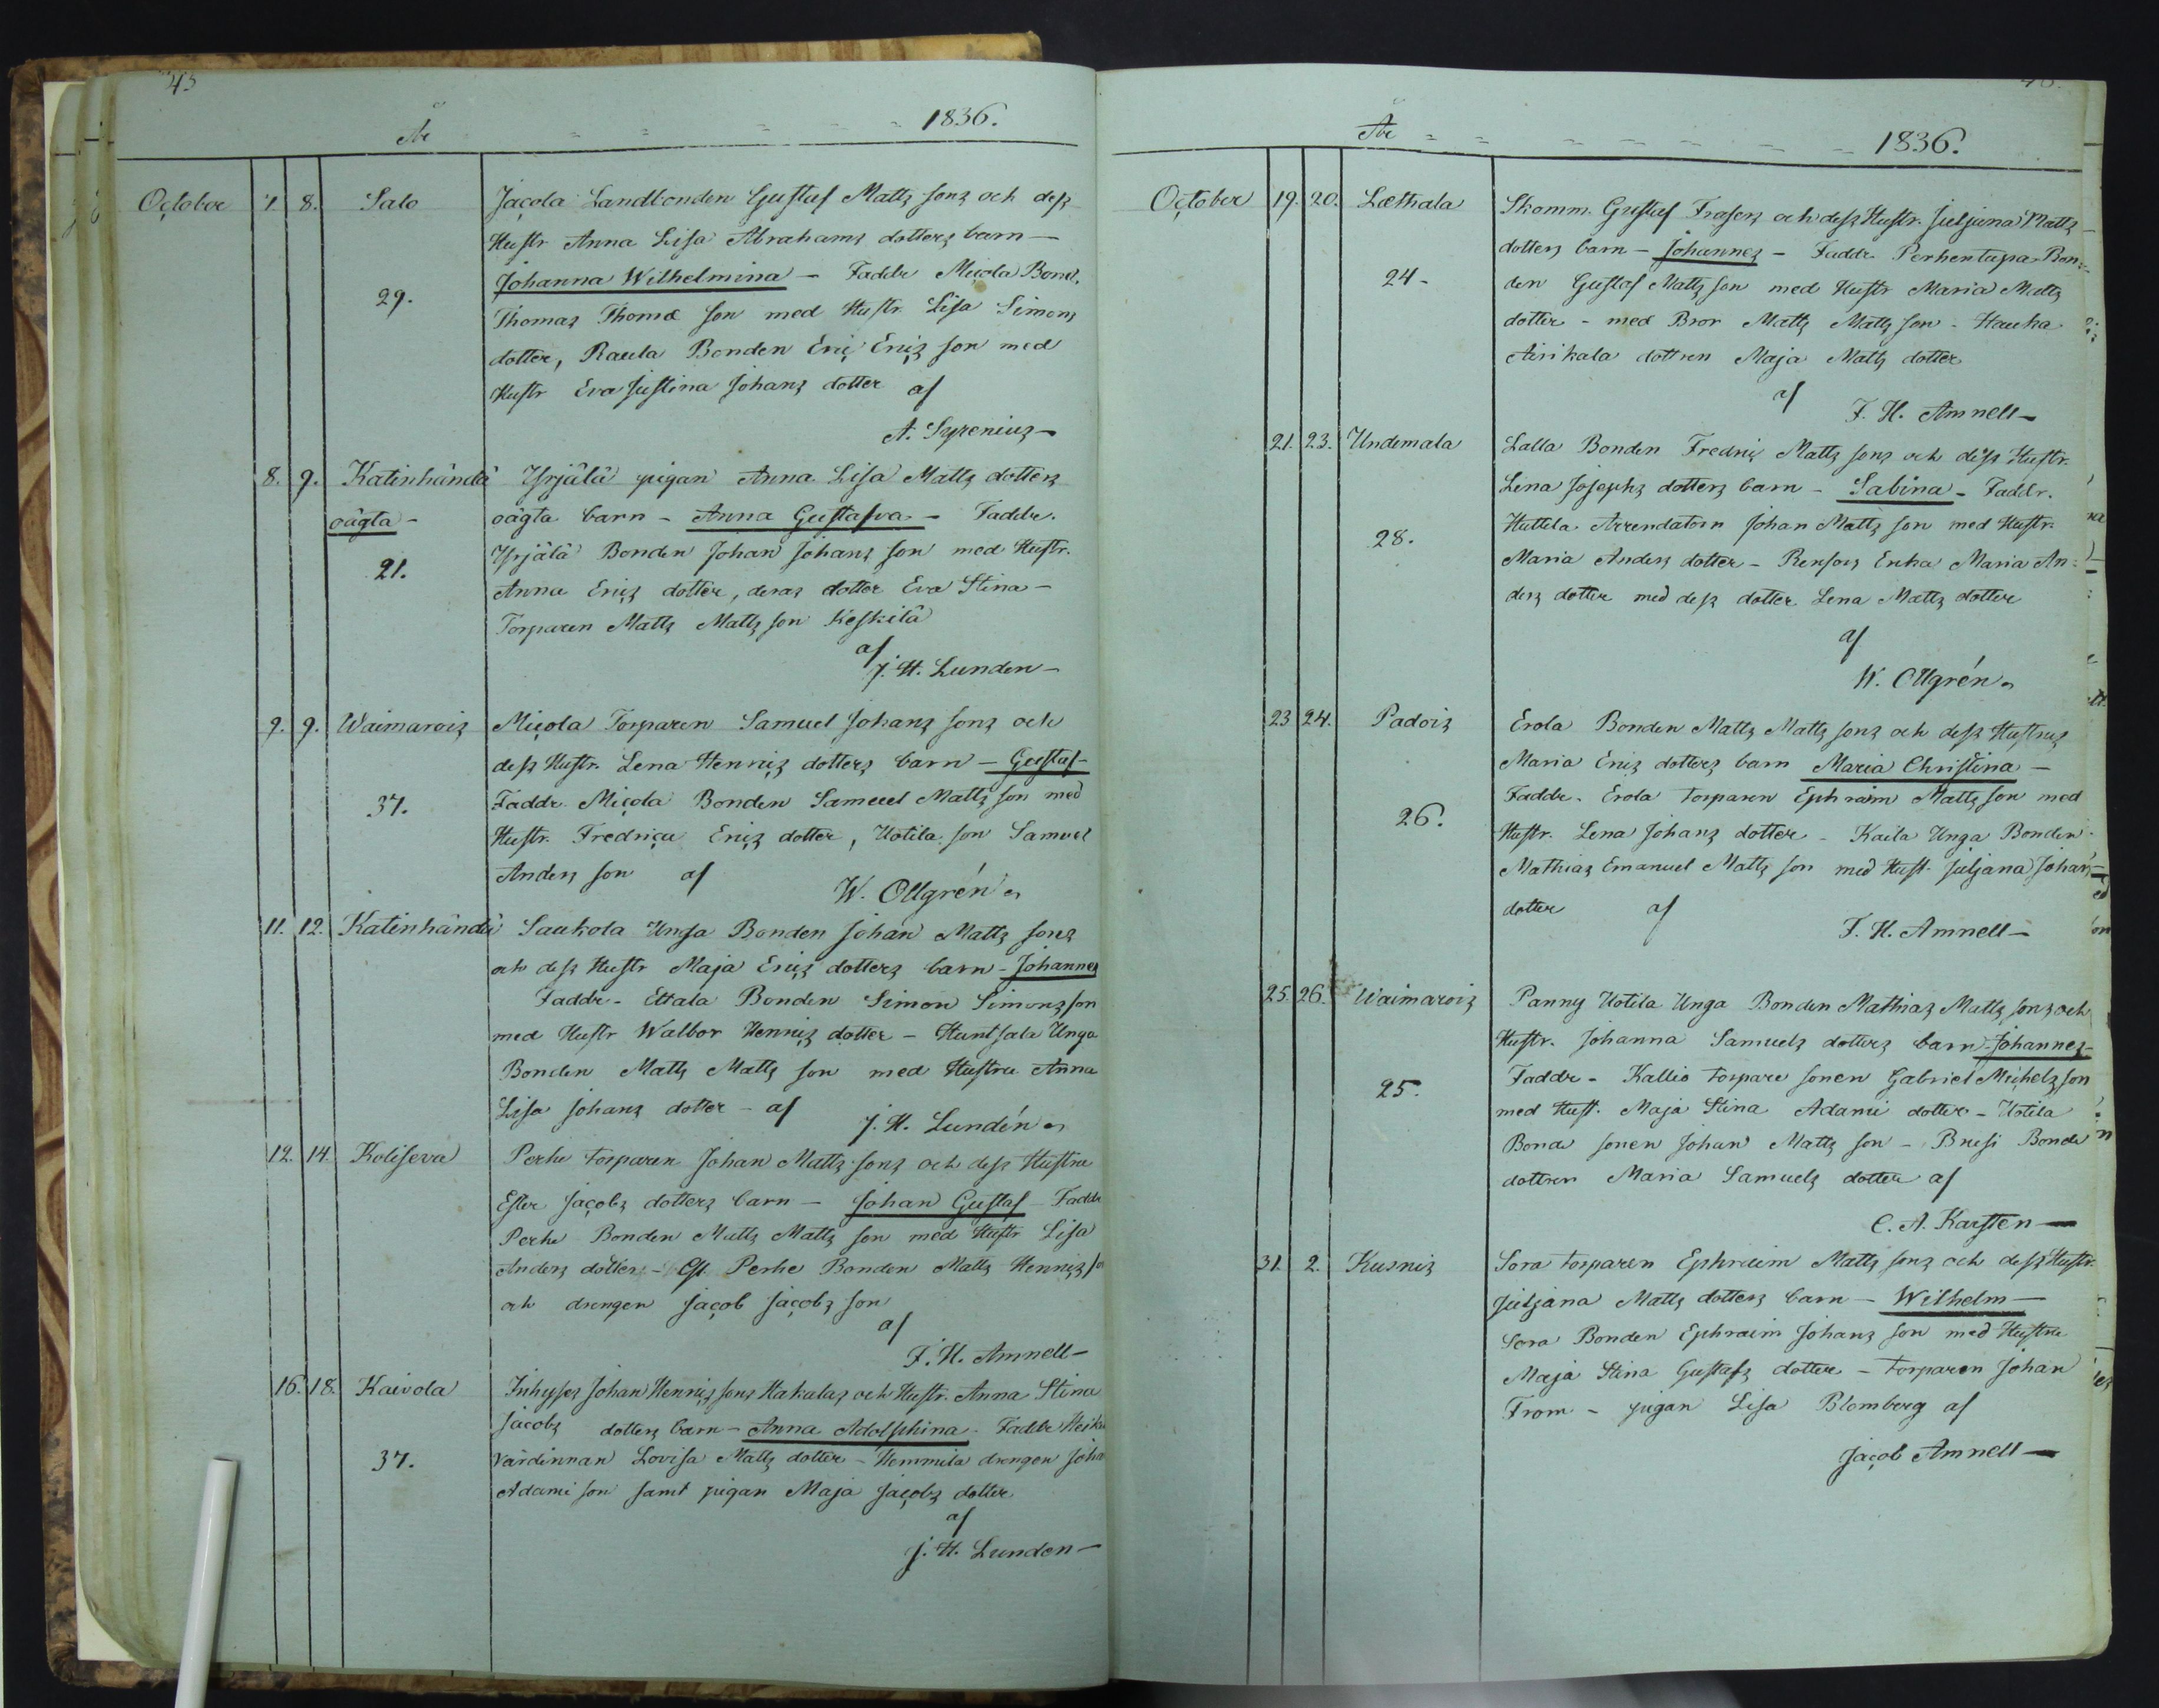 45
År 1836.
October 7. 8. Salo Jacola Landbonden Gustaf Matts sons och dess
Hustr Anna Lisa Abrahams dotters barn —
Johanna Wilhelmina — Faddr Micola Bond.
29.
Thomas Thomæ son med Hustr Lisa Simons
dotter, Raula Bonden Eric Erics son med
Hustr Eva Justina Johans dotter af
A. Syrenius —
8. 9. Katinhändä Yrjälä pigan Anna Lisa Matts dotters
oägta — oägta barn — Anna Gustafva — Faddr.
21. Yrjälä Bonden Johan Johans son med Hustr.
Anna Erics dotter, deras dotter Eva Stina —
Torparen Matts Matts son Keskilä
af
J. H. Lunden —
9. 9. Waimarois Micola Torparen Samuel Johans sons och
dess Hustr. Lena Henrics dotters barn — Gustaf —
37. Faddr. Micola Bonden Samuel Matts son med
Hustr. Fredrica Erics dotter, Uotila son Samuel
Anders son af
W. Ollgrén
11. 12. Katinhändä Saukola Unga Bonden Johan Matts sons
och dess Hustr Maja Erics dotters barn — Johannes
Faddr — Ettala Bonden Simon Simons son
med Hustr Walbor Henrics dotter — Huntsala Unga
Bonden Matts Matts son med Hustru Anna
Lisa Johans dotter — af
J. H. Lundén
12. 14. Koliseva Perhe torparen Johan Matts sons och dess Hustru
Ester Jacobs dotters barn — Johan Gustaf — Faddr
Perhe Bonden Matts Matts son med Hustr Lisa
Anders dotter — Gl. Perhe Bonden Matts Henrics
och drengen Jacob Jacobs son
af
F. H. Amnell —
16. 18. Kaivola Inhyses Johan Henrics sons Hakalas och Hustr. Anna Stina
Jacobs dotters barn — Anna Adolphina. Faddr
37. värdinnan Lovisa Matts dotter — Hemmila drengen Joha
Adami son samt pigan Maja Jacobs dotter
af
J. H. Lunden —
År 1836.
October 19. 20. Læthala Skomm. Gustaf Frasers och dess Hustr. Juljana Matts
dotters barn — Johannes — Faddr. Perhentupa Bon-
24. den Gustaf Matts son med Hustr Maria Matts
dotter — med Bror Matts Matts son — Hauha
Airikala dottren Maja Matts dotter
af
F. H. Amnell —
21. 23. Undemala Lalla Bonden Fredric Matts sons och dess Hustr.
Lena Josephs dotters barn — Sabina — Faddr.
28. Huttila Arrendatorn Johan Matts son med Hustr.
Maria Anders dotter — Rensors Enka Maria An:
ders dotter med dess dotter Lena Matts dotter
af
W. Ollgrén
23 24. Padois Erola Bonden Matts Matts sons och dess Hustrus
Maria Erics dotters barn Maria Christina —
26. Faddr. Erola torparen Ephraim Matts son med
Hustr. Lena Johans dotter — Kaila Unga Bonden
Mathias Emanuel Matts son med Hust. Juljana Johans
dotter af
F. H. Amnell —
25. 26. Waimarois Panny Uotila Unga Bonden Mathias Matts sons och
Hustr. Johanna Samuels dotters barn Johannes —
25. Faddr — Kallio torpare sonen Gabriel Michels son
med Hust. Maja Stina Adami dotter — Uotila
Bonde sonen Johan Matts son — Brusi Bonde
dottren Maria Samuels dotter af
C. A. Karsten —
31. 2. Kusnis Sora torparen Ephraim Matts sons och dess Hustr.
Juljana Matts dotters barn — Wilhelm —
Sora Bonden Ephraim Johans son med Hustru
Maja Stina Gustafs dotter — torparen Johan
From — pigan Lisa Blomberg af
Jacob Amnell —